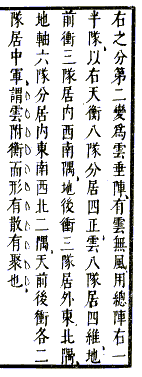 右之分第二變爲雲垂陣有雲無風用總陣右一
半隊以右天衡八隊分居四正雲八隊居四維地
前衝三隊居內西南隅地後衝三隊居外東北隅
地軸六隊分居內東南西北二隅天前後衝各二
隊居中軍謂雲附衡而形有散有聚也